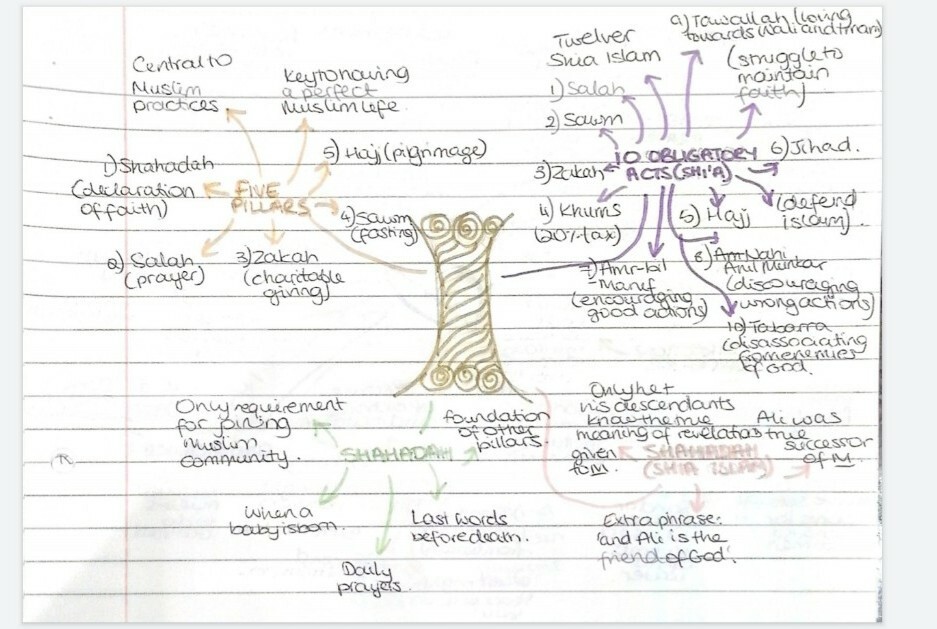 Central to
Muslim
practices.
Key to having
a perfect
Muslim life.
1) Shahadah
(declaration
of faith)
FIVE
PILLARS
5) Hajj (pilgrimage)
4) Sawm
(fasting)
2) Salah
(prayer)
3) Zakah
(charitable
giving)
Twelver
Shia Islam
9) Tawallah (loving
towards Wali and Imam)
(struggle to
maintain
faith)
1) Salah
2) Sawm
3) Zakah
10 OBLIGATORY
ACTS (SHI'A)
6) Jihad.
(defend
islam).
4) Khums
(20% tax)
5) Hajj
7) Amr-bil
-Maruf
(encouraging
good actions)
8) Am Nahi
Anil Munkar
(discouraging
wrong actions)
10) Tabarra
(disassociating
from enemies
of God.
Only requirement
for joining
Muslim
community.
SHAHADAH
foundation
of other
pillars.
When a
baby is born.
Daily
prayers.
Last words
before death.
Only he +
his descendants
know the true
meaning of revelations
given
to M.
SHAHADAH
(SHIA ISLAM)
Ali was
true
successor
of M
Extra phrase:
'and Ali is the
friend of God'.